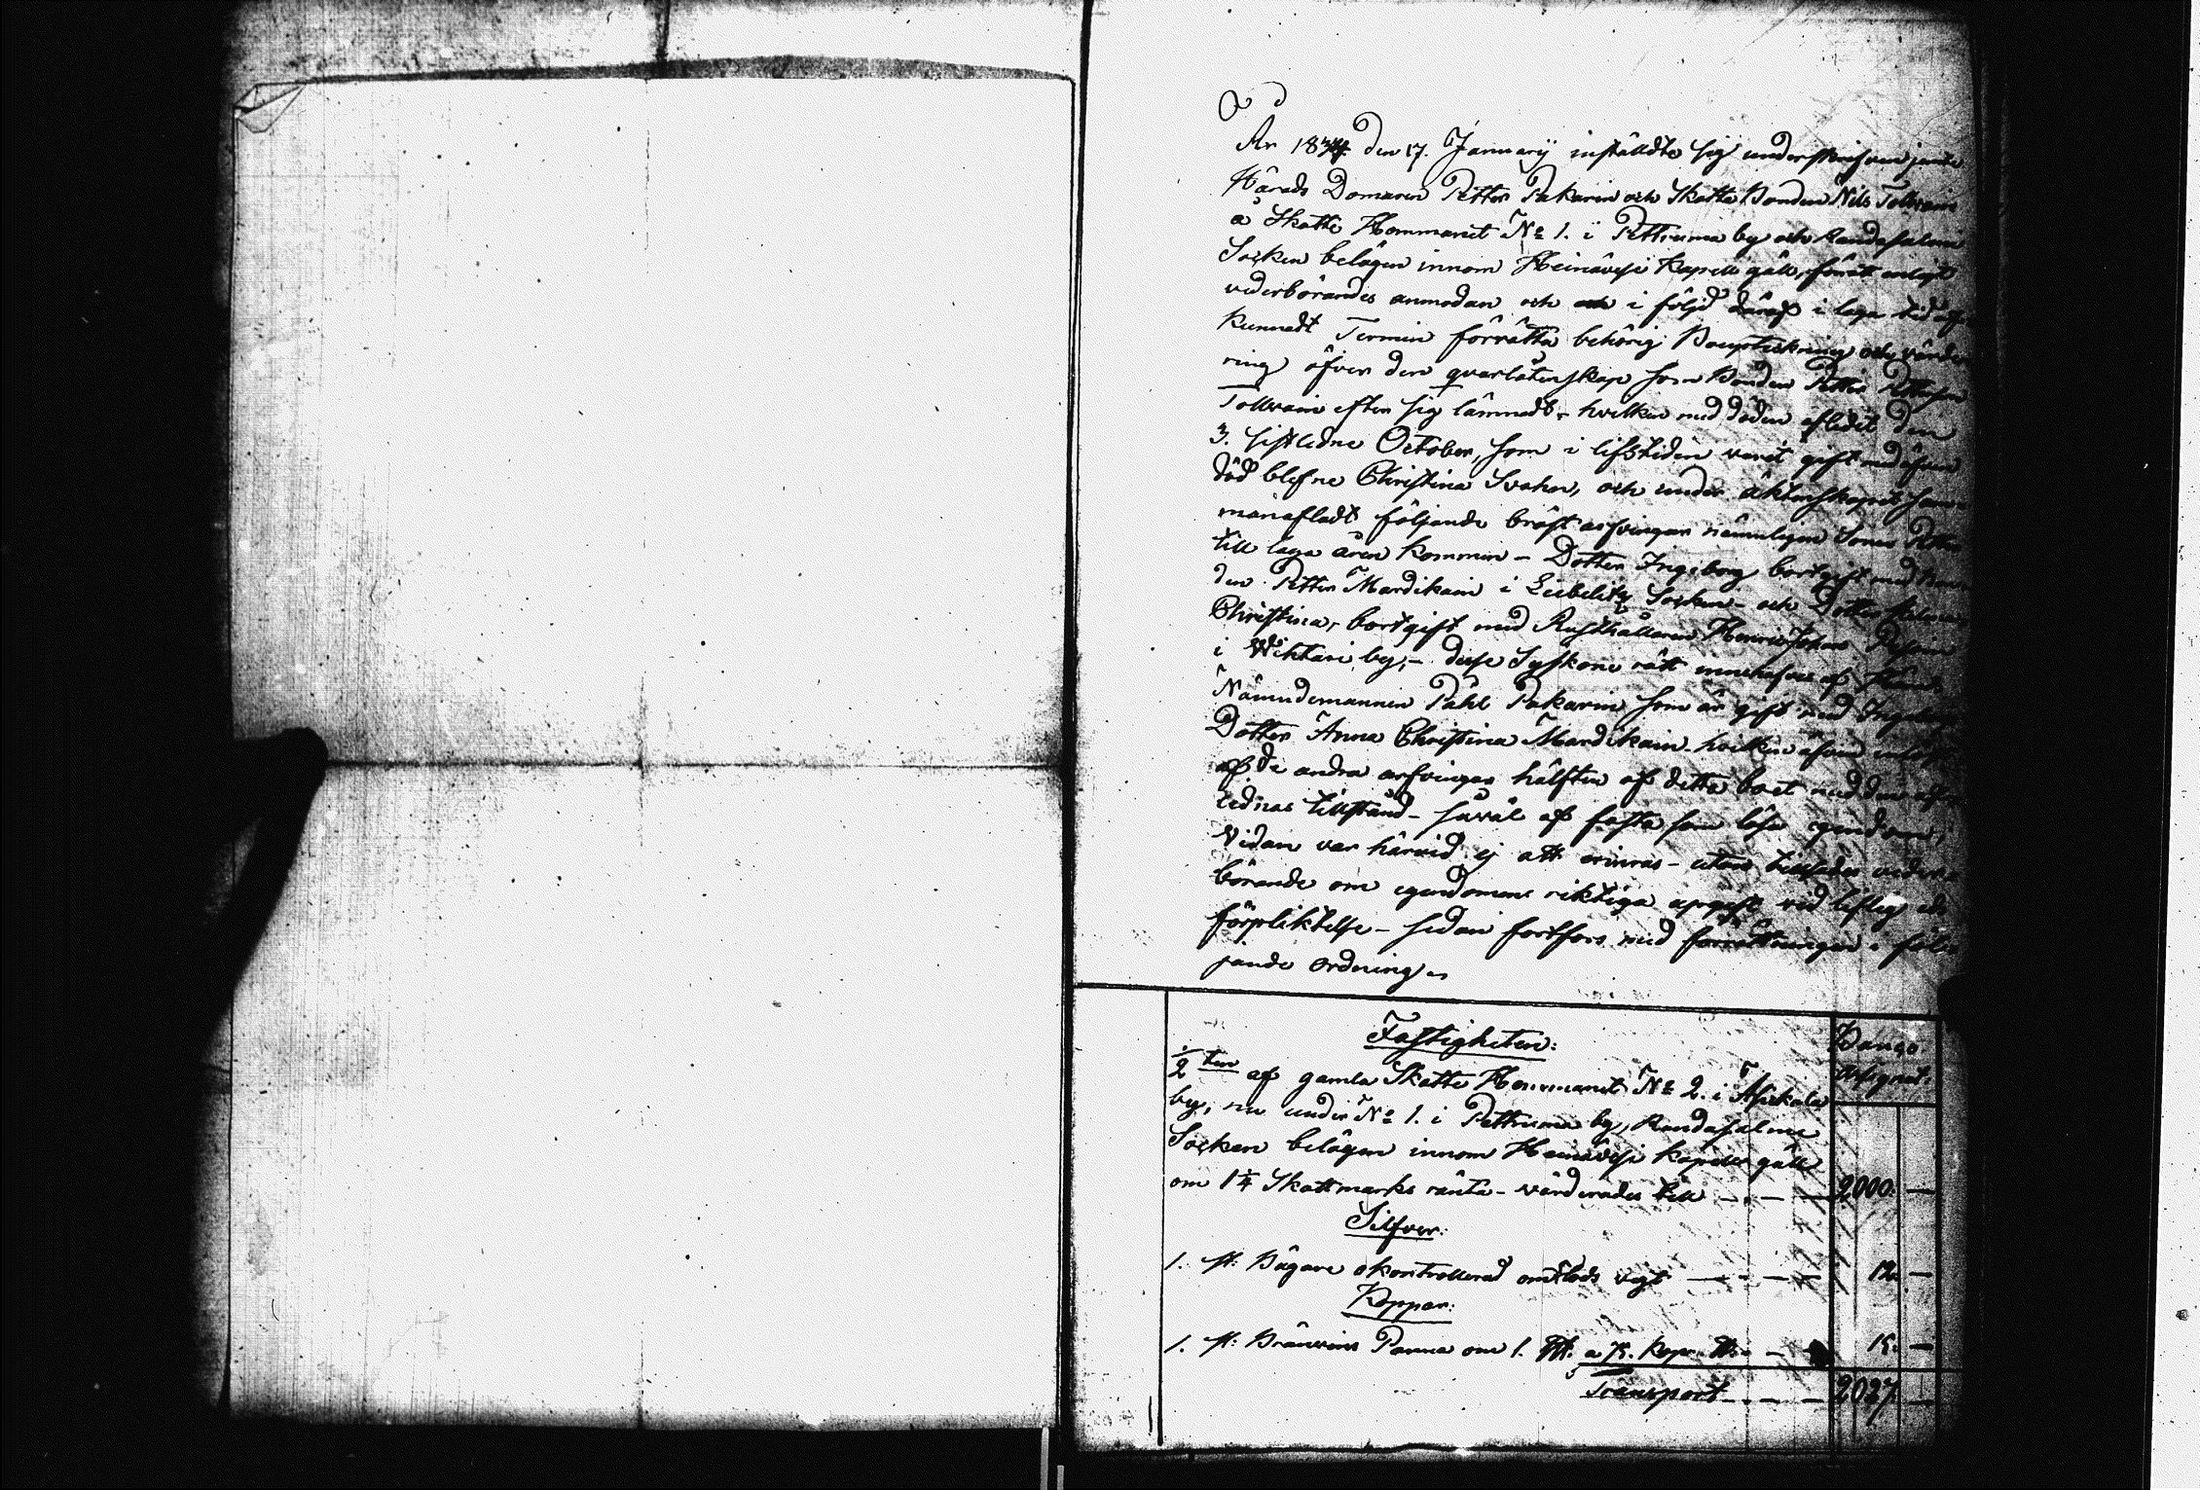 År 1834 den 17. Januarii instälde sig underskrifven jemte
Härads Domaren Petter Pakarin och Skatte Bonden Nils Tollvain
å Skatte Hemmanet N:o 1. i Pettruma by och Randasalmi
Socken belägen innom Heinävesi Kapell gäll, för att enligt
vederbörandes anmodan och i följd däraf i laga tid
kunnadt Termin förrätta behörig Bouptekning och värde
ring öfver den qvarlåtenskap som Bonden Petter
Tollvain efter sig lämnadt, hvilken med döden afledit den
3. sistledne October, som i lifstiden varit gift med äfven
död blefne Christina Svahn, och under äktenskapet sam
manafladt följande bröst arfvingar nämnligen Sonen Petter
till laga åren kommen - Dotter Ingeborg bortgift med Bon
den Petter Mardikain i Libelitz Socken - och Dotter
Christina, bortgift med Rusthållaren Henric Johan
i Wihtari by, - desse Syskone rätt innehafves af
Nämndemannen Påhl Pakarin som är gift med Ingeborgs
Dotter Anna Christina Mardikain hvilken äfven
af de andra arfvingar hälften af detta boet med den
lednas tillstånd - såväl af fasta som lösa egendom;
Vidare var härvid ej att erinras - utan tillsades veder
börande om egendomens riktiga uppgift vid liflig eds
förpliktelse - sedan fortfors med förrättningen i föl
jande ordning.
Fastigheten: Banco
Assignat.
1/2 ten af gamla Skatte Hemmanet N:o 2. i
by, nu under N:o 1. i Pettruma by, Randasalmi
Socken belägen innom Heinävesi Kapell gäll
om 1 1/4 Skattmarks ränta - värderades till - - - 2000. -
Silfver:
1. st: Bägare okontrollerad om lods vigt - - - 12. -
Koppar:
1. st: Bränvins Panna om 1. a 75. Kop. - - 15. -
Transport - - - 2027. -